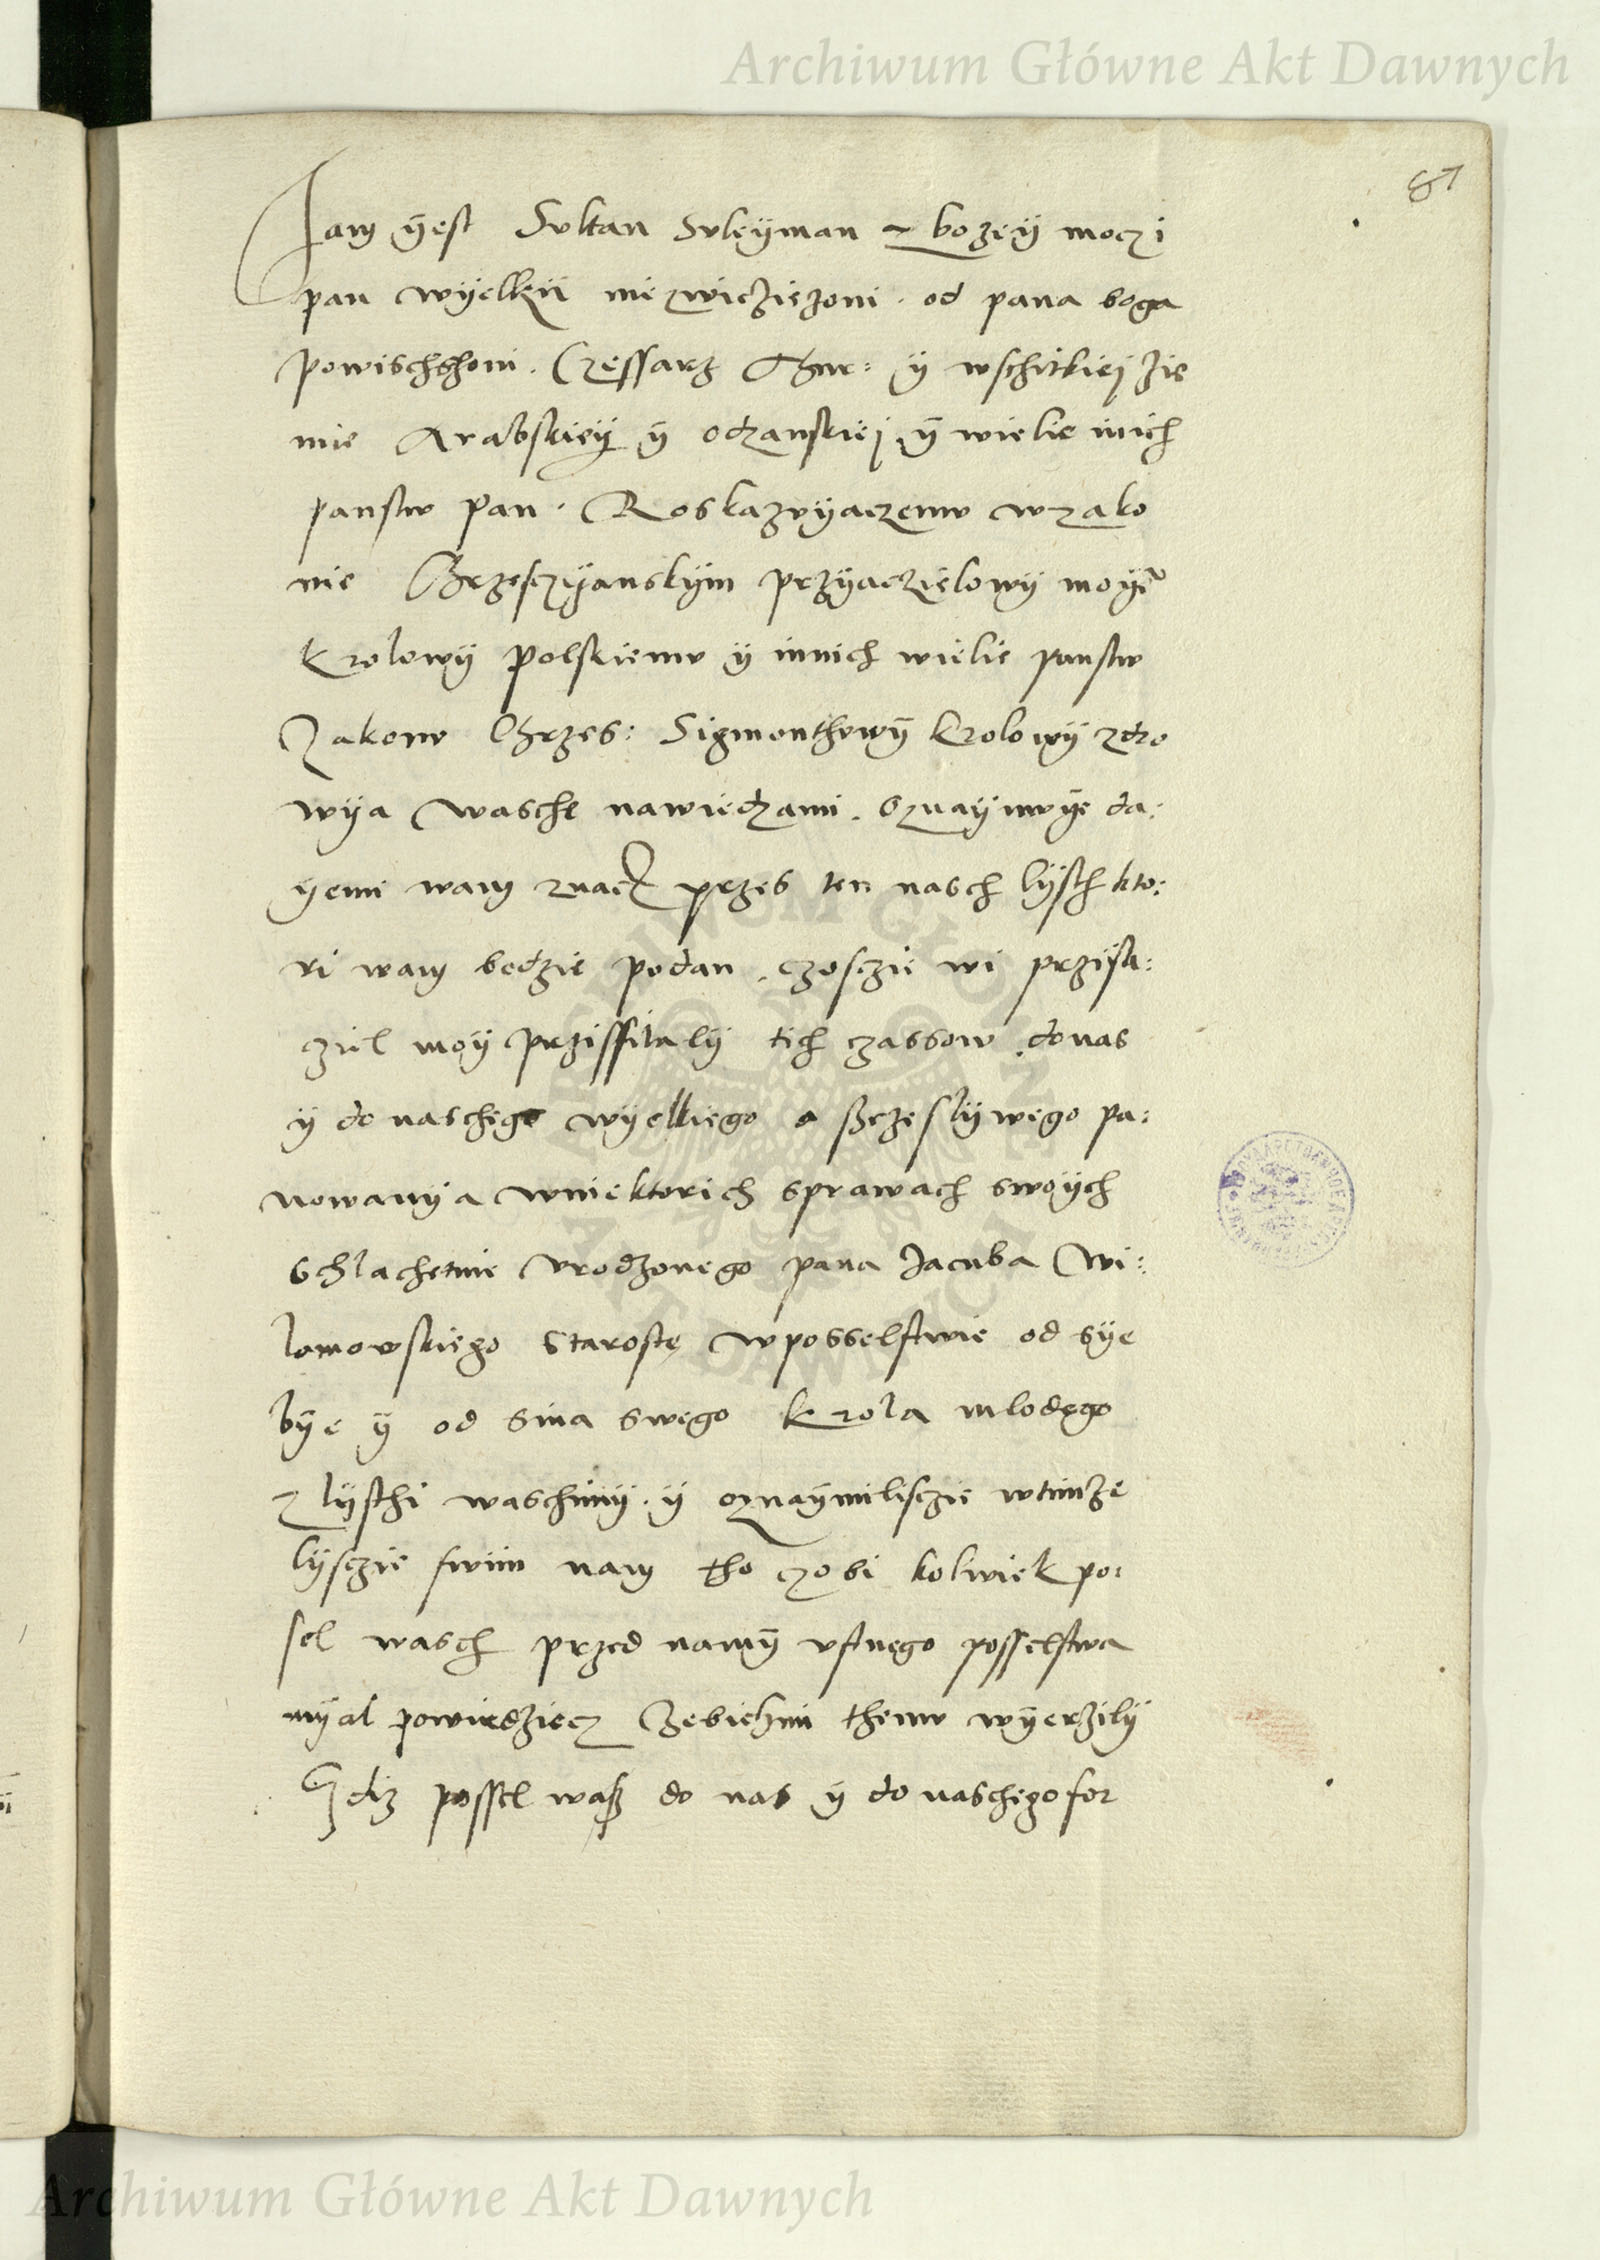 Archiwum Główne Akt Dawnych
87
Jam yest Sultan Suleyman z bozey moczi
pan wyelkii niezwicziezoni . od pana boga
powischshoni . Czessarz y wschitkiej zie
mie Arabskiey y odzanskiej y wielie inich
panstw pan . Roskazuyaczemu w zako
nie Chrzesczyanskym przyaczielowy moye
krolowy polskiemu y innich wielie panstw
Zakonu Chrzes: Sigmonthowy krolowy zdro
wya wasche nawiedzami . oznaymuye da:
yemi wam znack przes ten nasch lysth kto:
ri wam bedzie podan . czosczie wi przija:
cziel moy przissilaly tich czassow . do nas
y do naschego wyelkiego a szczeslywego pa:
nowanya w niektorich sprawach swoych
schlachetnie urodzonego pana Jacuba Wi:
lamowskiego staroste w posselstwie od sye
bye y od sina swego krola mlodego
z lysthi waschimy . y oznaymilisczie w timze
lysczie swiim nam tho czobi kolwiek po:
sel wasch przed namy ustnego posselstwa
myal powiedziecz zebichmi themu wyerzily
Gdiz possel wasz do nas y do naschego for
Archiwum Główne Akt Dawnych